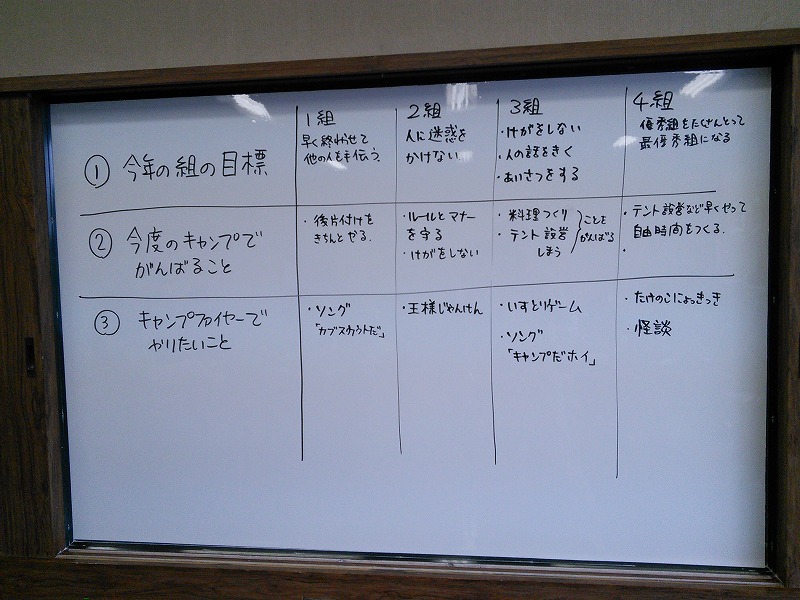 1組
2組
3組
4組
① 今年の組の目標
早く終わらせて
他の人も手伝う。
人に迷惑を
かけない
・けがをしない
・人の話をきく
・あいさつをする
優秀組をたくさんとって
最優秀組になる
② 今度のキャンプで
がんばること
・後片付けを
きちんとやる。
・ルールとマナー
を守る
・けがをしない
・料理つくり
・テント設営
しまう
ことを
がんばる
・テント設営など早くやって
自由時間をつくる。
・
③ キャンプファイヤーで
やりたいこと
・ソング
「カブスカウトだ」
・王様じゃんけん
・いすとりゲーム
・ソング
「キャンプだホイ」
・たけのこにょっきっき
・怪談